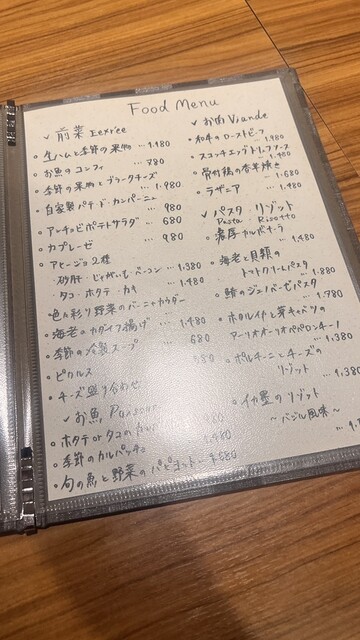 Food Menu
✓ 前菜 Eexr'ee
○ 生ハムと季節の果物 … 1.480
○ お魚のコンフィ … 780
○ 季節の果物とブラータチーズ … 1.980
○ 自家製パテ・ド・カンパーニュ … 980
○ アーチョビポテトサラダ … 680
○ カプレーゼ … 980
○ アヒージョ2種
・砂肝・じゃがいも・ベーコン … 1.380
・タコ・ホタテ・カキ … 1.380
色々彩り野菜のバーニャカウダー … 1.480
○ 海老のカダイフ揚げ … 1.480
○ 季節の冷製スープ … 680
○ ピクルス
○ チーズ盛り合わせ
✓ お魚
○ ホタテ or タコの
○ 季節のカルパッチョ
○ 旬の魚と野菜のパピヨット 1.680
✓ お肉 Viande
○ 和牛のローストビーフ 1.980
○ スコッチエッグトリュフソース
○ 骨付鶏の香草焼き … 1.680
○ ラザニア … 1.480
✓ パスタ・リゾット
Pasta Risotto
○ 濃厚カルボナーラ … 1.480
○ 海老と貝類の
トマトクリームパスタ … 1.880
○ 鮪のジェノベーゼパスタ … 1.780
○ ホタルイカと芽キャベツの
アーリオオーリオペペロンチーノ … 1.380
○ ポルチーニとチーズの
リゾット … 1.380
○ イカ墨のリゾット
〜バジル風味〜